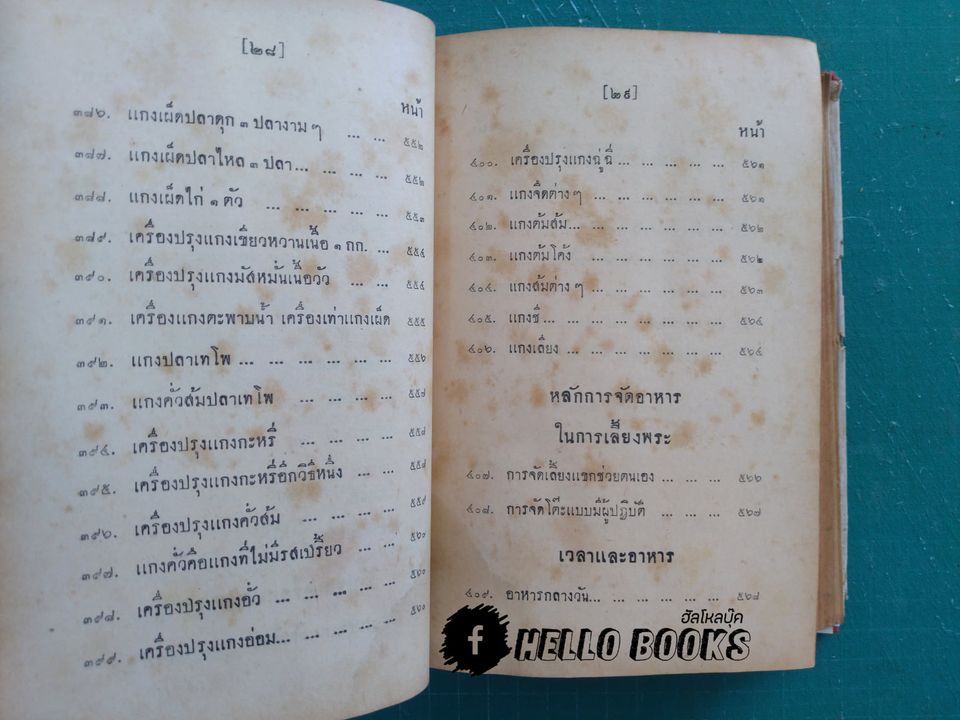 [๒๘]
หน้า
๓๘๖. แกงเผ็ดปลาดุก ๓ ปลางาม ๆ ... ... ๕๕๒
๓๘๗. แกงเผ็ดปลาไหล ๓ ปลา... ... ... ... ๕๕๒
๓๘๘. แกงเผ็ดไก่ ๑ ตัว ... ... ... ... ... ๕๕๓
๓๘๙. เครื่องปรุงแกงเขียวหวานเนื้อ ๑ กก. ... ๕๕๔
๓๙๐. เครื่องปรุงแกงมัสหมั่นเนื้อวัว ... ... ๕๕๔
๓๙๑. เครื่องแกงตะพาบน้ำ เครื่องเท่าแกงเผ็ด ๕๕๕
๓๙๒. แกงปลาเทโพ ... ... ... ... ... ... ๕๕๖
๓๙๓. แกงคั่วส้มปลาเทโพ ... ... ... ... ๕๕๗
๓๙๔. เครื่องปรุงแกงกะหรี่ ... ... ... ... ๕๕๘
๓๙๕. เครื่องปรุงแกงกะหรี่อีกวิธีหนึ่ง ... ... ๕๕๘
๓๙๖. เครื่องปรุงแกงคั่วส้ม ... ... ... ... ๕๕๙
๓๙๗. แกงคั่วคือแกงที่ไม่มีรสเปรี้ยว ... ... ๕๖๐
๓๙๘. เครื่องปรุงแกงอั่ว ... ... ... ... ... ๕๖๐
๓๙๙. เครื่องปรุงแกงอ่อม... ... ... ... ... ๕๖๐
[๒๙]
หน้า
๔๐๐. เครื่องปรุงแกงฉู่ฉี่ ... ... ... ... ... ๕๖๑
๔๐๑. แกงจืดต่าง ๆ ... ... ... ... ... ... ๕๖๑
๔๐๒. แกงต้มส้ม... ... ... ... ... ... ... ๕๖๒
๔๐๓. แกงต้มโคล้ง ... ... ... ... ... ... ๕๖๒
๔๐๔. แกงส้มต่าง ๆ ... ... ... ... ... ... ๕๖๓
๔๐๕. แกงขี้ ... ... ... ... ... ... ... ... ๕๖๔
๔๐๖. แกงเลียง ... ... ... ... ... ... ... ๕๖๔
หลักการจัดอาหาร
ในการเลี้ยงพระ
๔๐๗. การจัดเลี้ยงแขกช่วยตนเอง ... ... ... ๕๖๖
๔๐๘. การจัดโต๊ะแบบมีผู้ปฏิบัติ ... ... ... ๕๖๗
เวลาและอาหาร
๔๐๙. อาหารกลางวัน... ... ... ... ... ... ๕๖๘
ฮัลโหลบุ๊ค
f HELLO BOOKS